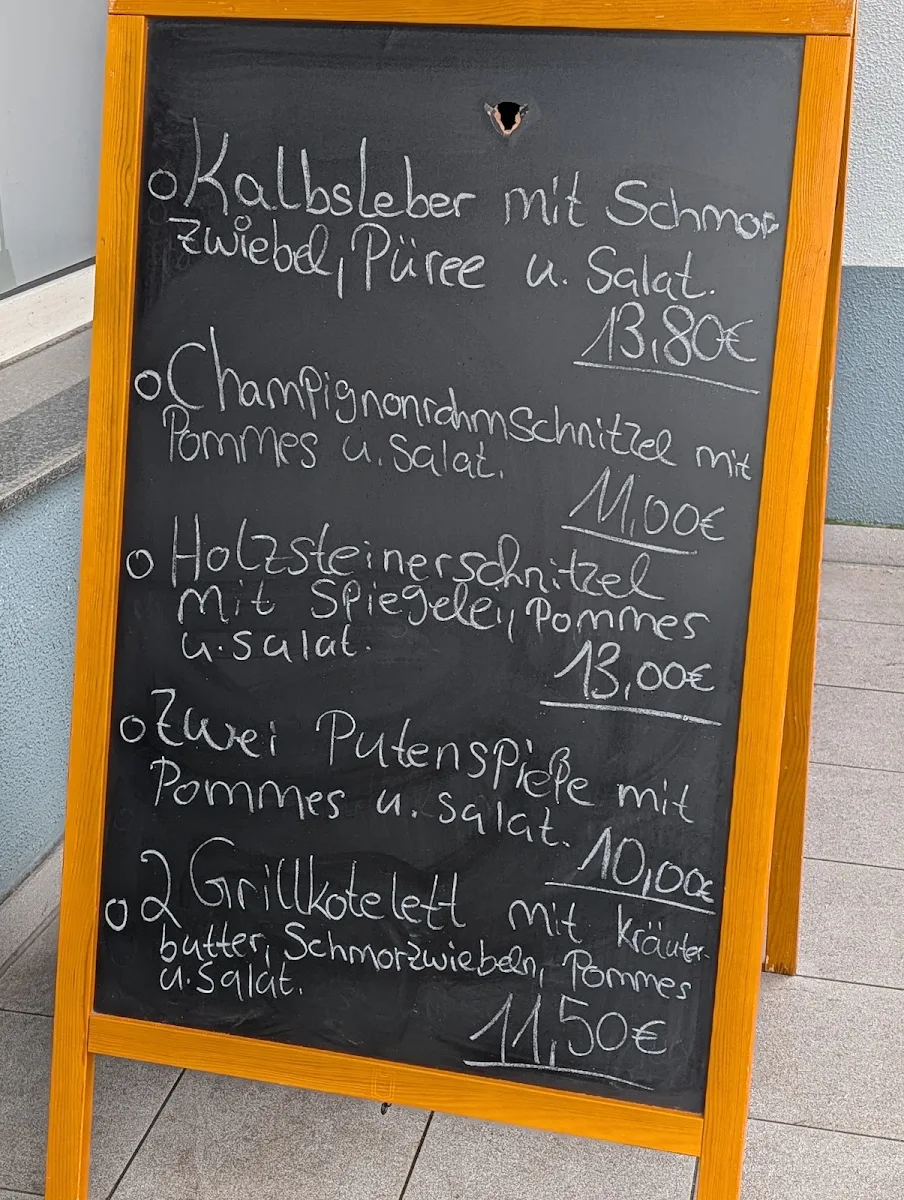 o Kalbsleber mit Schmor
zwiebel, Püree u. Salat.
13,80€
o Champignonrahmschnitzel mit
Pommes u. Salat.
11,00€
o Holzsteinerschnitzel
mit Spiegelei, Pommes
u. salat.
13,00€
o Zwei Putenspieße mit
Pommes u. salat.
10,00€
o 2 Grillkotelett mit Kräuter-
butter, Schmorzwiebeln, Pommes
u. Salat.
11,50€